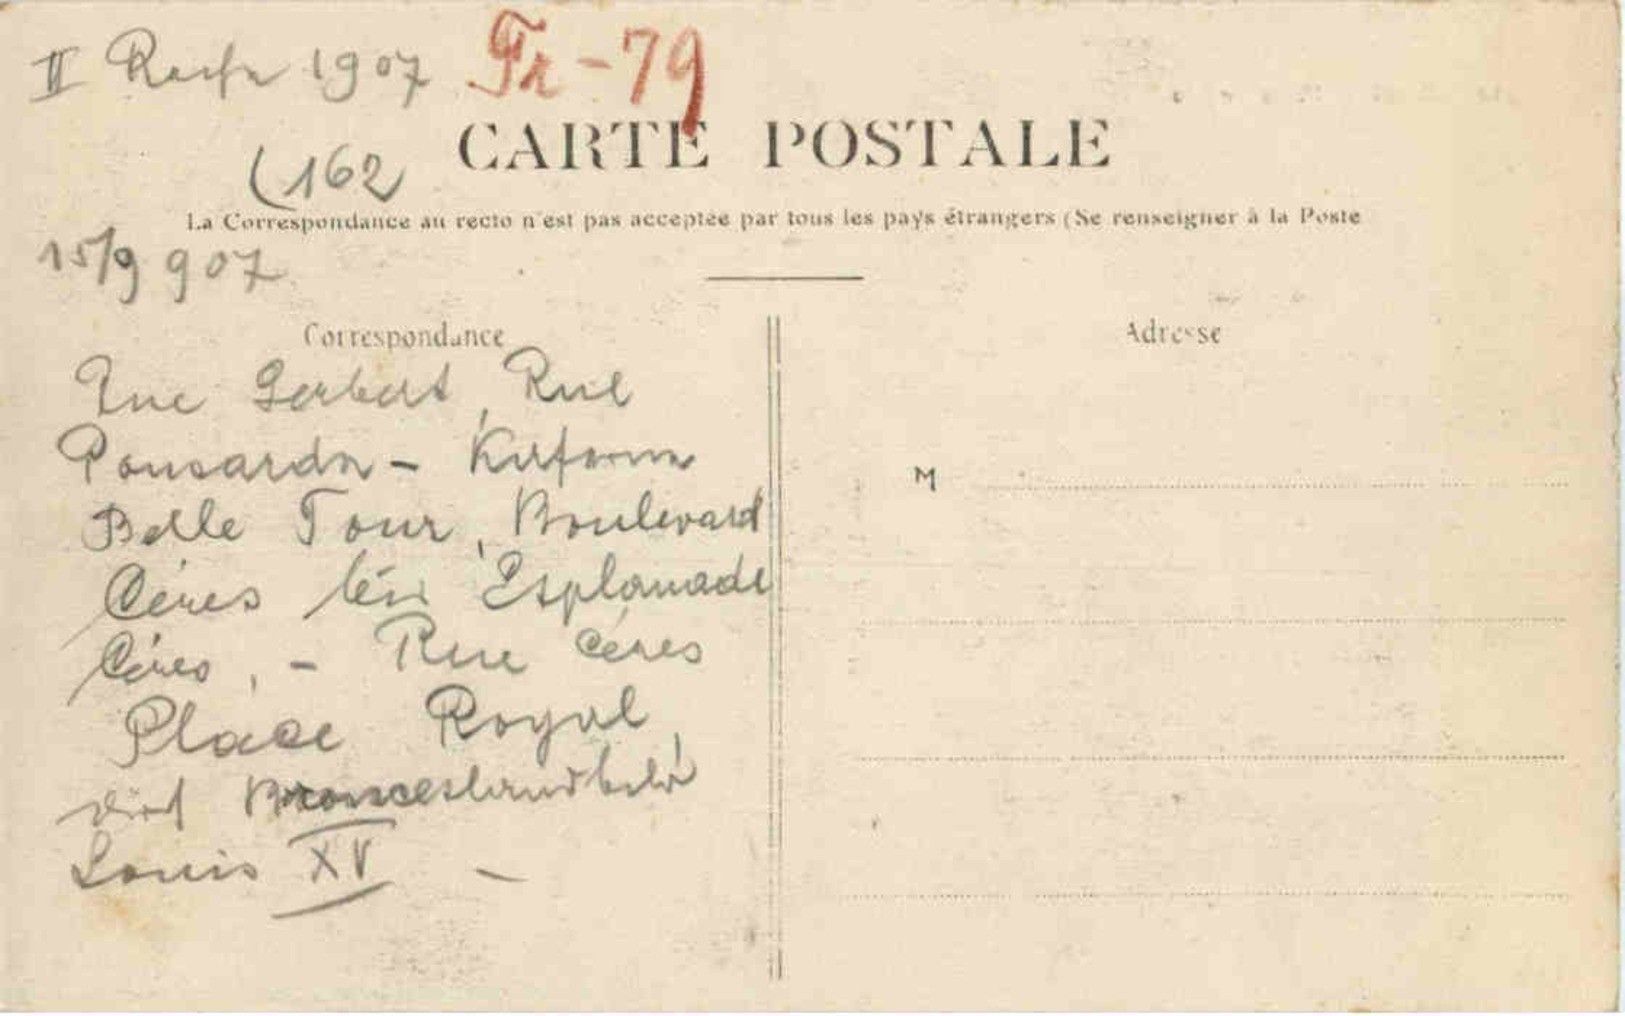 II 1907 Fr-79
(162
CARTE POSTALE
La Correspondance au recto n'est pas acceptée par tous les pays étrangers (Se renseigner à la Poste
15/9 907
Correspondance
Adresse
Rue Gerbert, Rue
Ponsardin -
Belle Tour, Boulevard
Céres Esplanade
Céres, - Rue Céres
Place Royal,
Louis XV -
M